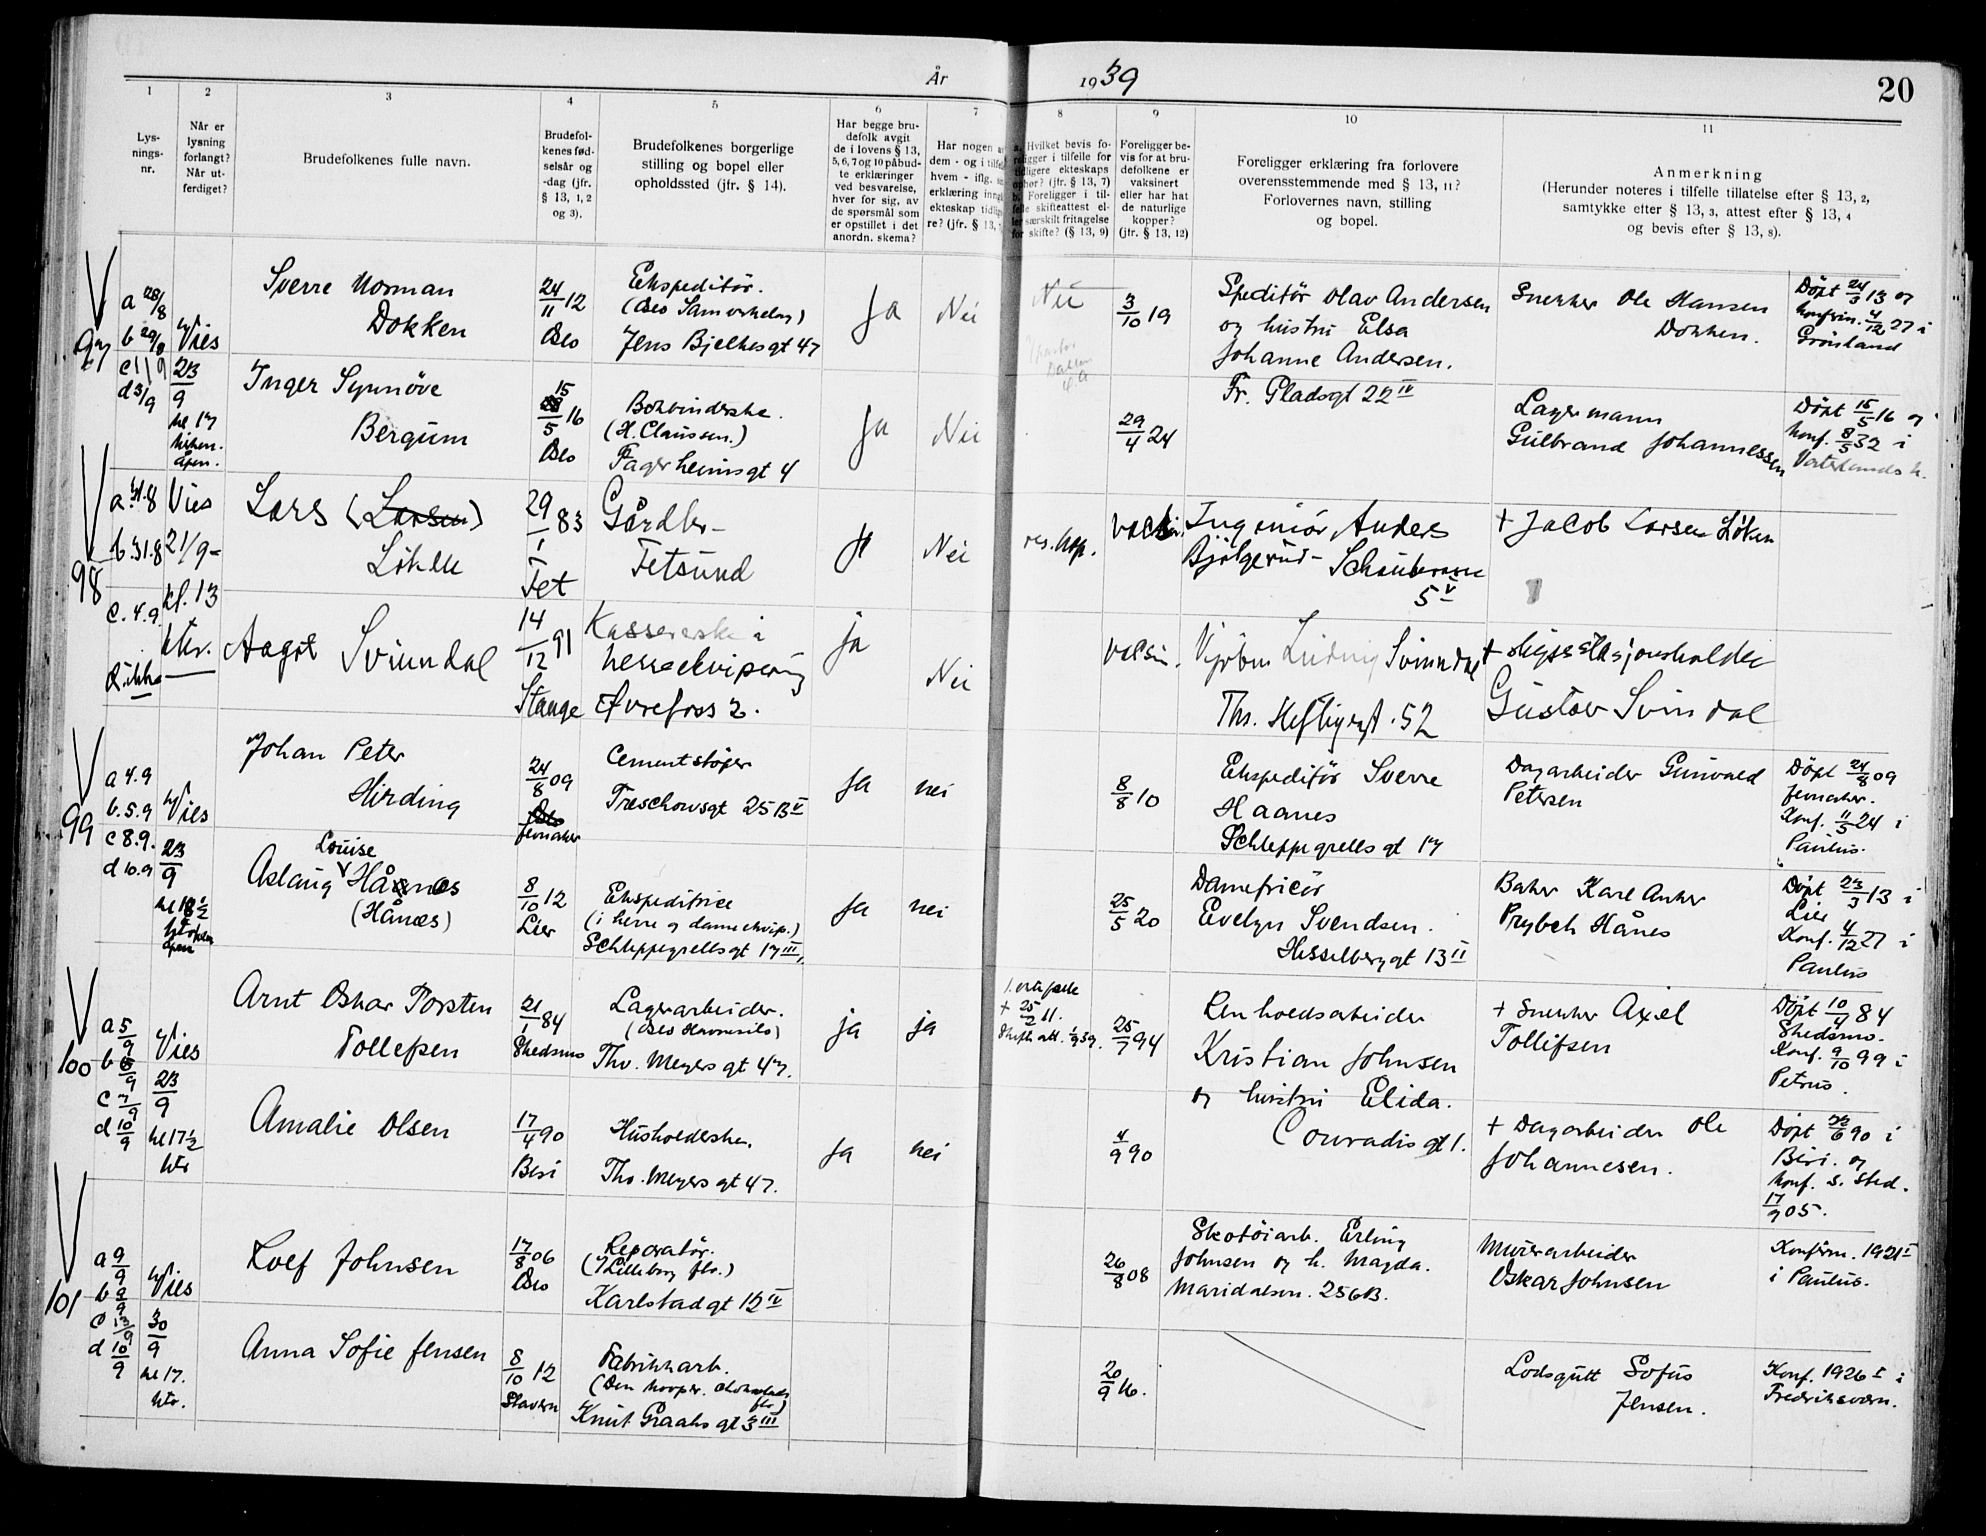 År 1939
20
1
2
3
4
5
6
7
8
9
10
11
Lys-
nings-
nr.
Når er
lysning
forlangt?
Når ut-
ferdiget?
Brudefolkenes fulle navn.
Brudefol-
kenes fød-
selsår og
-dag (jfr.
§ 13, 1, 2
og 3).
Brudefolkenes borgerlige
stilling og bopel eller
opholdssted (jfr. § 14).
Har begge bru-
defolk avgit
de i lovens § 13,
5, 6, 7 og 10 påbud-
te erklæringer
ved besvarelse,
hver for sig, av
de spørsmål som
er opstillet i det
anordn. skema?
Har nogen
dem - og i
hvem - iflg.
erklæring
ekteskap
re? (jfr. § 13,
Hvilket bevis fo-
religger i tilfelle for
tidligere ekteskaps
ophør? (jfr. § 13, 7)
b. Foreligger i til-
felle skifteattest el-
ler særskilt fritagelse
for skifte? (§ 13, 9)
Foreligger be-
vis for at bru-
defolkene er
vaksinert
eller har hat
de naturlige
kopper?
(jfr. § 13, 12)
Foreligger erklæring fra forlovere
overensstemmende med § 13, 11?
Forlovernes navn, stilling
og bopel.
Anmerkning
(Herunder noteres i tilfelle tillatelse efter § 13, 2,
samtykke efter § 13, 3, attest efter § 13, 4
og bevis efter § 13, 8).
97
a 28/8
b 29/8
c 1/9
d 3/9
Vies
23/9
kl 17
Sverre Norman
Dokken
24/11 12
Oslo
Ekspeditør.
(Oslo Samvirkelag)
Jens Bjelkesgt 47
Ja
Nei
Nei
3/10 19
Speditør Olav Andersen
og hustru Elsa
Johanne Andersen.
Fr. Pladsgt 22 IV
Snekker Ole Hansen
Dokken.
Døpt 24/3 13 og
konfirm. 4/12 27 i
Grønland
Inger Synnøve
Bergum
15/5 16
Oslo
Bokbinderske.
(H. Claussen.)
Fagerheimsgt 4
Ja
Nei
29/4 24
Lagermann
Gulbrand Johannessen
Døpt 15/5 16 og
konf. 8/5 32 i
98
a 31.8
b 31.8
c. 4.9.
Vies
21/9-
kl. 13
ktr.
Lars (Larsen)
Løken
29/1 83
Fet
Gårdbr-
Fetsund
Ja
Nei
vaksin.
Ingeniør Anders
Bjølgerud-
5 V
+ Jacob Larsen Løken
Aagot Svinndal
14/12 91
Stange
Kassererske i
herreekvipering
Øvrefoss 2.
ja
Nei
vaksin.
Ludvig Svinndal
Ths. Heftyesgt. 52
Gustav Svindal
99
a 4.9
b. 5.9
c 8.9.
d 10.9
Vies
23/9
Johan Peter
Hirding
24/8 09
Oslo
Jevnaker
Cementstøper
Treschowsgt 25 B II
Ja
nei
8/8 10
Ekspeditør Sverre
Haanes
Schleppegrellsgt 17
Dagarbeider Gunvald
Petersen
Døpt 24/8 09
Jevnaker.
Konf. 11/5 24 i
Paulus.
Louise
Aslaug Hånes
(Hånæs)
8/10 12
Lier
Ekspeditrise
(i herre og dameekvip.)
Schleppegrellsgt 17 III.
Ja
nei
25/5 20
Damefrisør
Evelyn Svendsen.
Hesselberggt 13 II
Baker Karl Anker
Prybch Hånes
Døpt 23/3 13 i
Lier
Konf. 4/12 27 i
Paulus
100
a 5/9
b 6/9
c 7/9
d 10/9
Vies
23/9
kl 17 1/2
ktr
Arnt Oskar Torsten
Tollefsen
21/1 84
Skedsmo
Lagerarbeider.
(Oslo Havnesilo)
Thv. Meyers gt 47.
ja
ja
+ 25/2 11.
Skifteatt. 1/9 39.
25/7 94
Renholdsarbeider
Kristian Johnsen
og hustru Elida.
Conradis gt 1.
+ Snekker Axel
Tollifsen
Døpt 10/4 84
Skedsmo.
Konf. 9/10 99 i
Petrus.
Amalie Olsen
17/4 90
Biri
Husholderske.
Thv. Meyers gt 47.
Ja
nei
4/9 90
+ Dagarbeider Ole
Johannesen.
Døpt 22/6 90 i
Biri. og
konf. s. sted.
17/9 05.
101
a 9/9
b 9/9
c 13/9
d 10/9
Vies
30/9
kl 17.
ktr.
Rolf Johnsen
17/8 06
Oslo
Reparatør.
(Lilleborg fbr.)
Karlstadgt 12 IV
26/8 08
Skotøiarb. Erling
Johnsen og h. Magda.
Maridalsvn. 256 B.
Murerarbeider
Oskar Johnsen
Konfirm. 1921 I
i Paulus.
Anna Sofie Jensen
8/10 12
Stavern
Fabrikkarb.
(Den kooper. chokolade
fbr)
Knut Graahs gt 3 III
20/9 16.
Losgutt Sofus
Jensen.
Konf. 1926 I i
Fredriksvern.